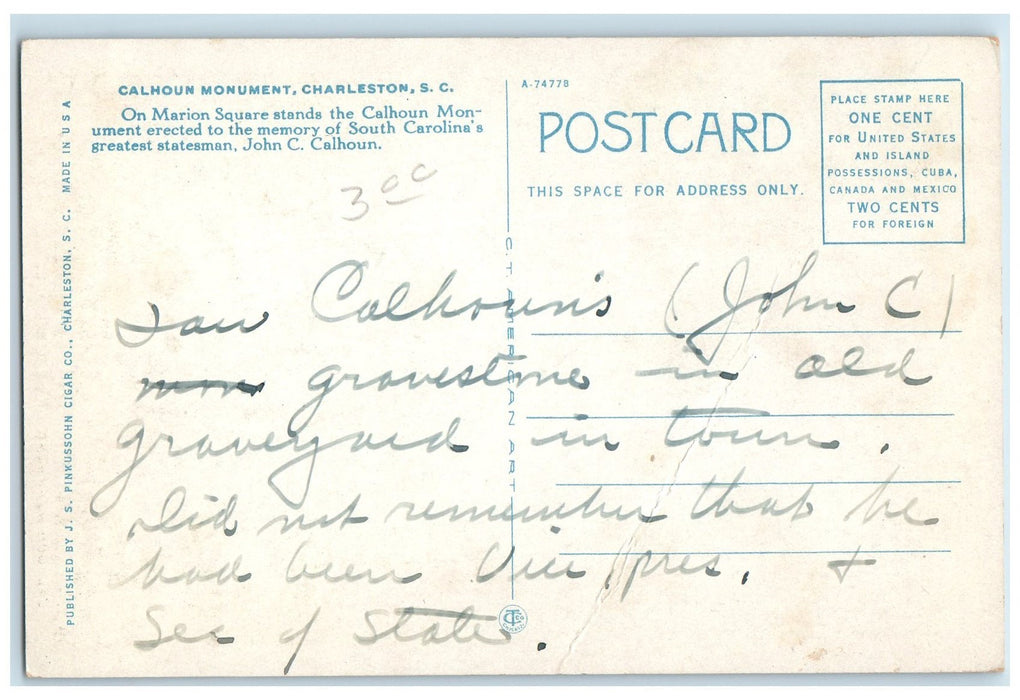 CALHOUN MONUMENT, CHARLESTON, S. C.
On Marion Square stands the Calhoun Mon-
ument erected to the memory of South Carolina's
greatest statesman, John C. Calhoun.
3 00
A-74778
POST CARD
THIS SPACE FOR ADDRESS ONLY.
PLACE STAMP HERE
ONE CENT
FOR UNITED STATES
AND ISLAND
POSSESSIONS, CUBA,
CANADA AND MEXICO
TWO CENTS
FOR FOREIGN
PUBLISHED BY J. S. PINKUSSOHN CIGAR CO., CHARLESTON, S. C. MADE IN U S A
C. T. AMERICAN ART
Saw Calhoun's (John C)
gravestone in old
graveyard in town.
Did not remember that he
had been Vice pres. +
Sec of State.